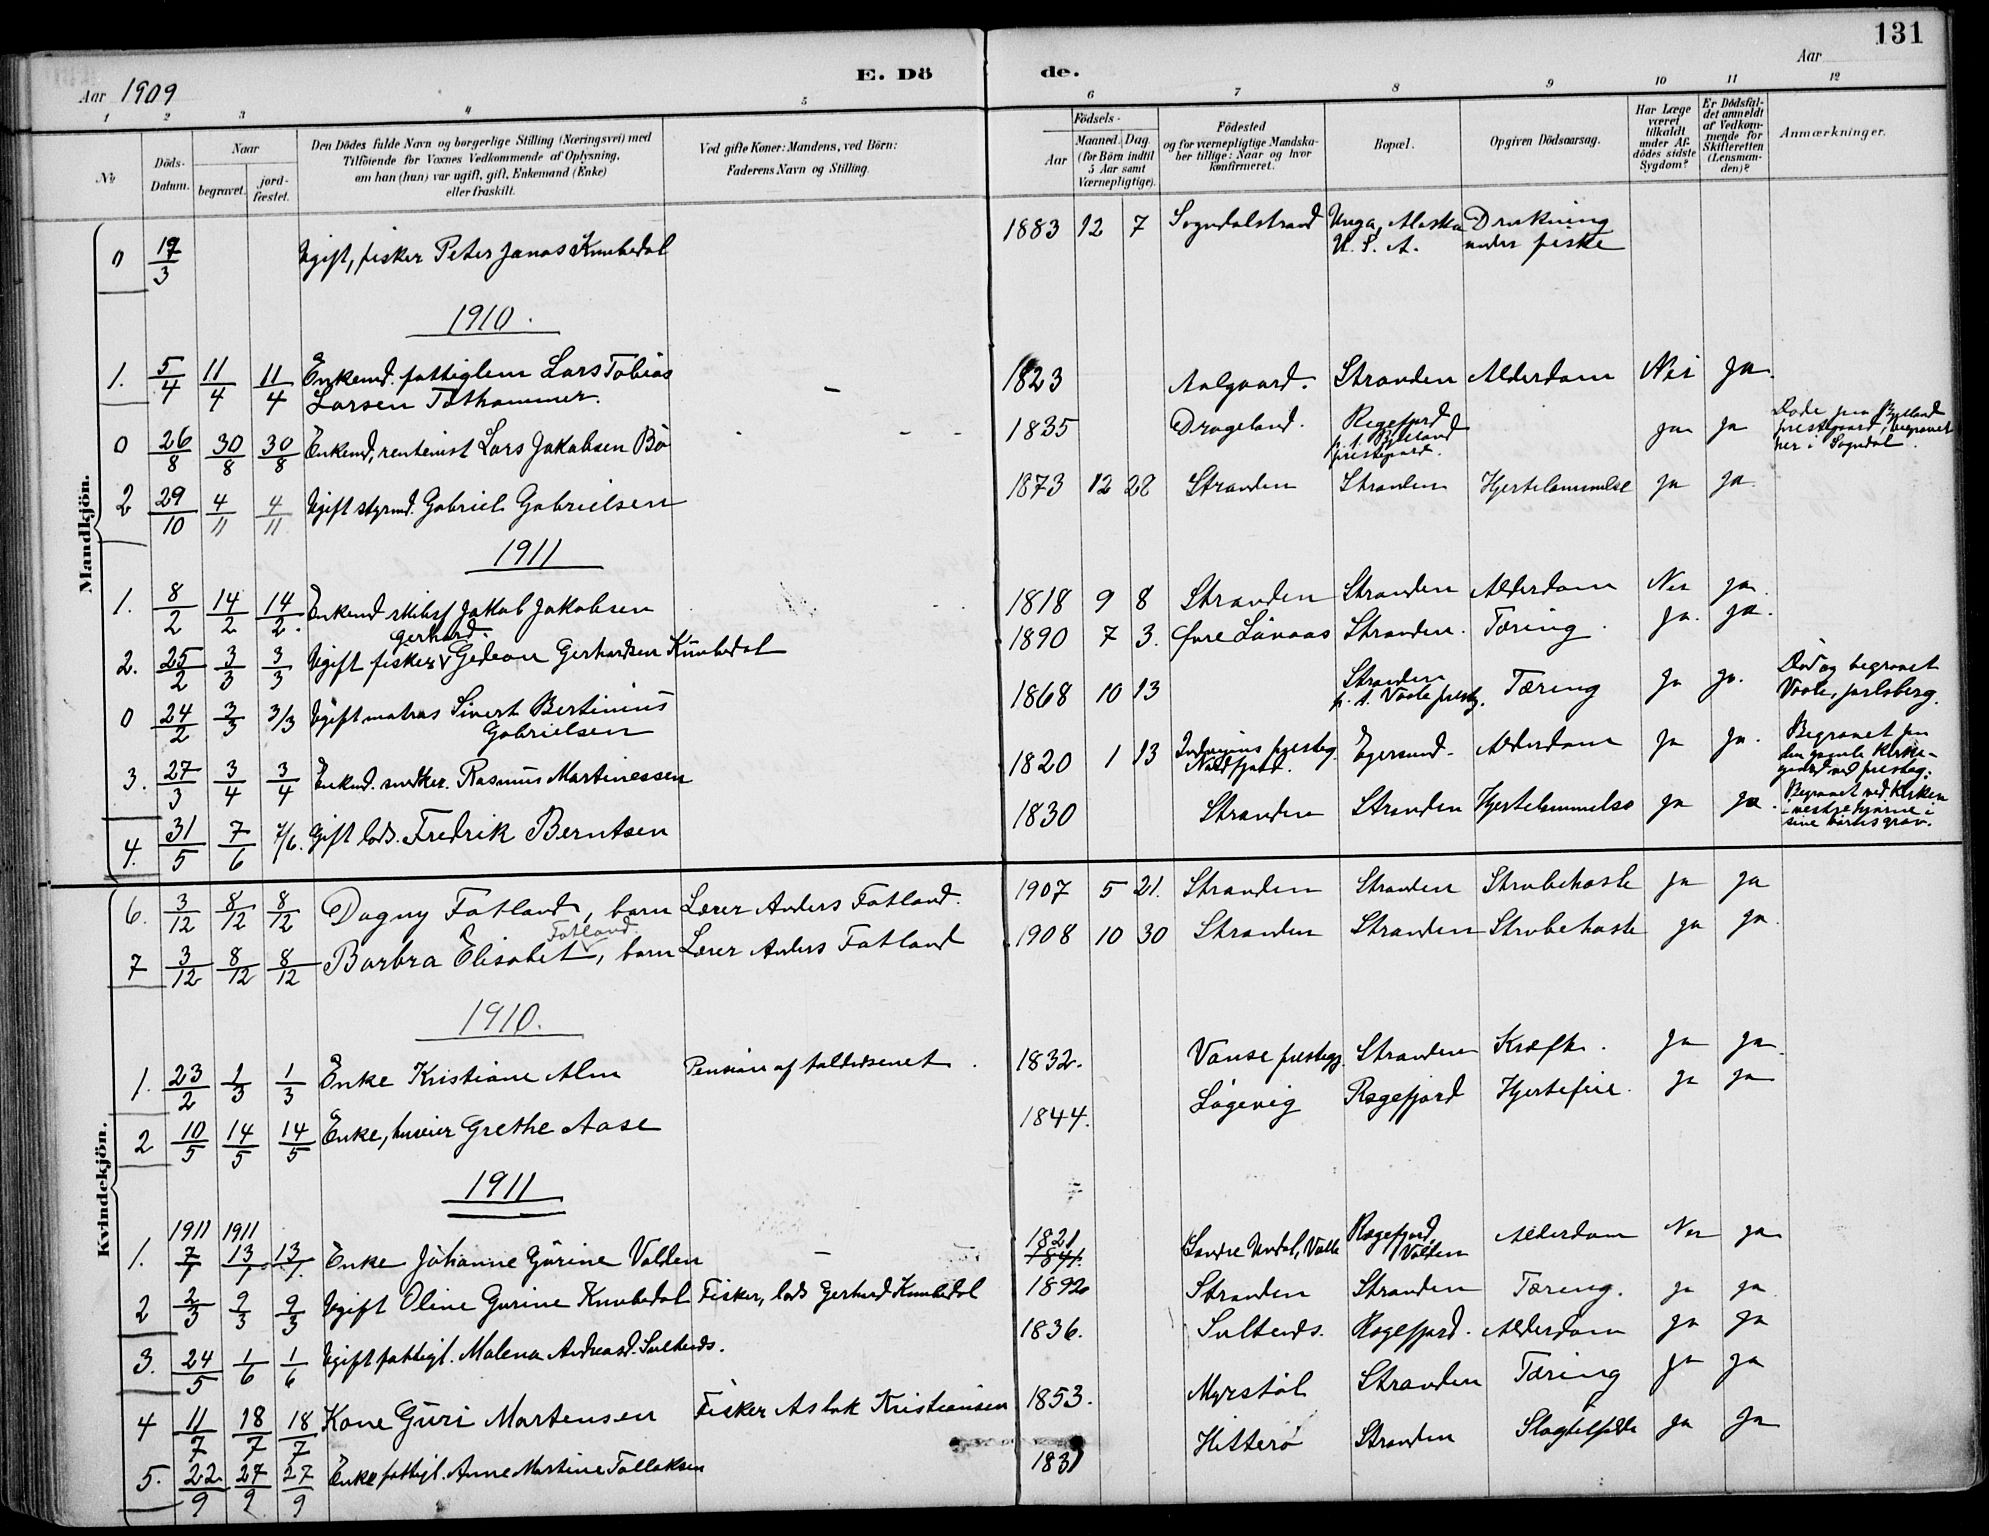 131
Aar 1909
E. Dö
de.
Aar
1 2 3 4 5 6 7 8 9 10 11 12
No
Döds-
Datum.
Naar
begravet.
jord-
fæstet.
Den Dödes fulde Navn og borgerlige Stilling (Næringsvei) med
Tilföiende for Voxnes Vedkommende af Oplysning,
om han (hun) var ugift, gift, Enkemand (Enke)
eller fraskilt.
Ved gifte Koner: Mandens, ved Börn:
Faderens Navn og Stilling.
Födsels-
Aar
Maaned. Dag.
(for Börn indtil
5 Aar samt
Værnepligtige).
Födested
og for værnepligtige Mandska-
ber tillige: Naar og hvor
konfirmeret.
Bopæl.
Opgiven Dödsaarsag.
Har Læge
været
tilkaldt
under Af-
dödes sidste
Sygdom?
Er Dödsfal-
det anmeldt
af Vedkom-
mende for
Skifteretten
(Lensman-
den)?
Anmærkninger.
Mandkjön.
0 17/3 Ugift, fisker Peter Janas Knubedal 1883 12 7 Sogndalstrand Unga, Alaska U. S. A. Drukning under fiske
1910.
1. 5/4 11/4 11/4 Enkemd. fattiglem Lars Tobias
Larsen Tothammer. - 1823 Aalgaard. Stranden Alderdom Nei ja.
0 26/8 30/8 30/8 Enkemd, rentenist Lars Jakobsen Bö 1835 Drageland. Regefjord p. t. Bjelland prestegaard. ja ja Döde paa Bjelland
prestegaard, begravet
her i Sogndal.
2 29/10 4/11 4/11 Ugift styrmd. Gabriel Gabrielsen 1873 12 28 Stranden Stranden Hjertelammelse ja ja.
1911
1. 8/2 14/2 14/2. Enkemd skibsf Jakob Jakobsen 1818 9 8 Stranden Stranden Alderdom Nei ja.
Gerhard.
2. 25/2 3/3 3/3 Ugift fisker Gedeon Gerhardsen Knubedal 1890 7 3. Øvre Lånaas Stranden. Tæring. ja. ja.
0 24/2 3/3 3/3 Ugift matros Sivert Bertinius
Gabrielsen 1868 10 13 Stranden p. t. Vaale prestg. Tæring ja ja. Död og begravet
Vaale, jarlsberg.
3. 27/3 3/4 3/4 Enkemd. snedker. Rasmus Martinessen 1820 1 13 presteg. Nordfjord. Egersund. Alderdom ja ja. Begravet paa
den gamle kirke-
gaard ved presteg.
4. 31/5 7/6 7/6. Gift lods. Fredrik Berntsen 1830 Stranden Stranden Hjertelammelse ja ja. Begravet ved kirken
i vestre hjörne i
sine börns grav.
Kvindekjön.
6. 3/12 8/12 8/12 Dagny Fatland, barn Lærer Anders Fatland. 1907 5 21. Stranden Stranden Strubehoste ja ja
Fatland.
7 3/12 8/12 8/12 Barbra Elisabet, barn Lærer Anders Fatland 1908 10 30 Stranden Stranden Strubehoste ja ja.
1910.
1. 23/2 1/3 1/3 Enke Kristiane Alm Pension af toldvæsenet. 1832. Vanse prestegj. Stranden Kræft. ja ja
2 10/5 14/5 14/5 Enke, huseier Grethe Aase 1844. Lögevig Rægefjord Hjertefeil. ja ja
1911
1911 1911
1. 7/1 13/1 13/1. Enke Johanne Gurine Valden - 1821 1841. Söndre Undal, Valle Rægefjord, Valden Alderdom Nei ja
2 2/3 9/3 9/3 Ugift Oline Gurine Knubedal Fisker, lods Gerhard Knubedal 1892 Stranden Stranden Tæring. ja ja
3. 24/5 1/6 1/6 Ugift fattigl. Malena Andreasd. Sultends. 1836. Sultends. Rægefjord. Alderdom ja ja
4 11/7 18/7 18/7 Kone Guri Mortensen Fisker Aslak Kristiansen 1853. Myrstöl Stranden Tæring ja ja
5. 22/9 27/9 27/9 Enke fattigl. Anne Martine Tollaksen 1831 Hitterö Stranden Slagtilfælde ja ja